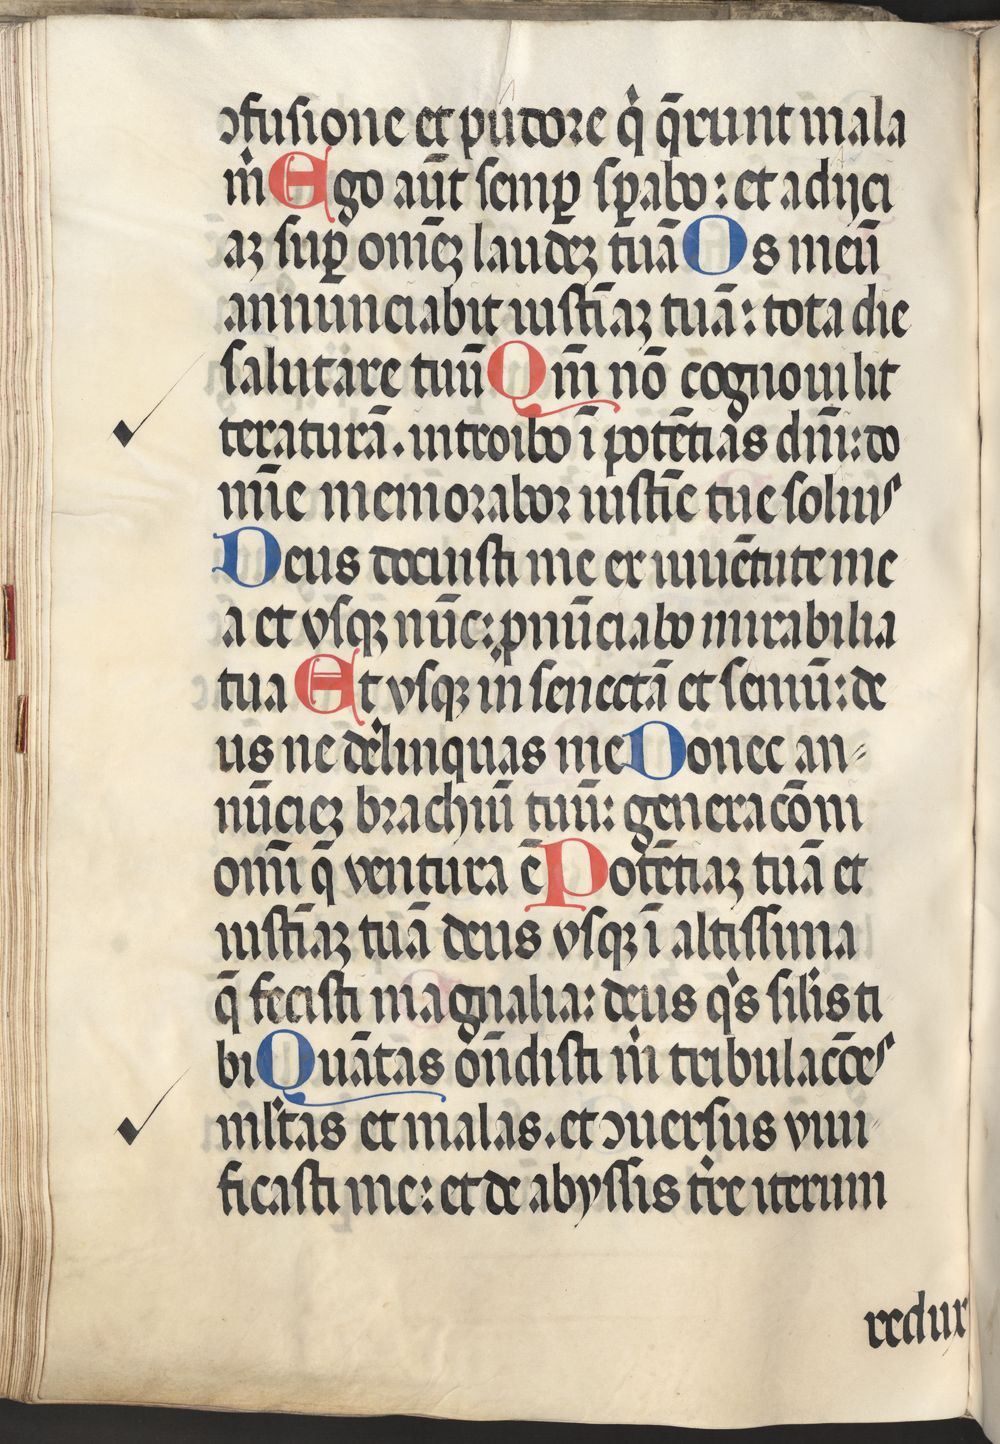 ꝯfusione et pudore qͥ q̄runt mala
m̍ Ego aūt semꝑ sꝑabo: et adijci
aꝫ suꝑ om̄eꝫ laudeꝫ tuā Os meū
annunciabit iustīaꝫ tuā: tota die
salutare tuū Qm̄ nō cognoui lit
teraturā. introibo ī potētias dn̄i: do
mīe memorabor iustīe tue solius
Deus docuisti me ex iuuētute me
a et vsqꝫ nūc: ꝓnūciabo mirabilia
tua Et vsqꝫ in senectā et seniū: de
us ne delinquas me Donec an⸗
nūcieꝫ brachiū tuū: generacōni
om̄i q̄ ventura ē Potētiaꝫ tuā et
iustīaꝫ tuā deus vsqꝫ ī altissima
q̄ fecisti magnalia: deus qͥs sil̍is ti
bi Quātas on̄disti m̍ tribulacōes
ml̄tas et malas. et ꝯuersus viui⸗
ficasti me: et de abyssis tr̍e iterum
redux